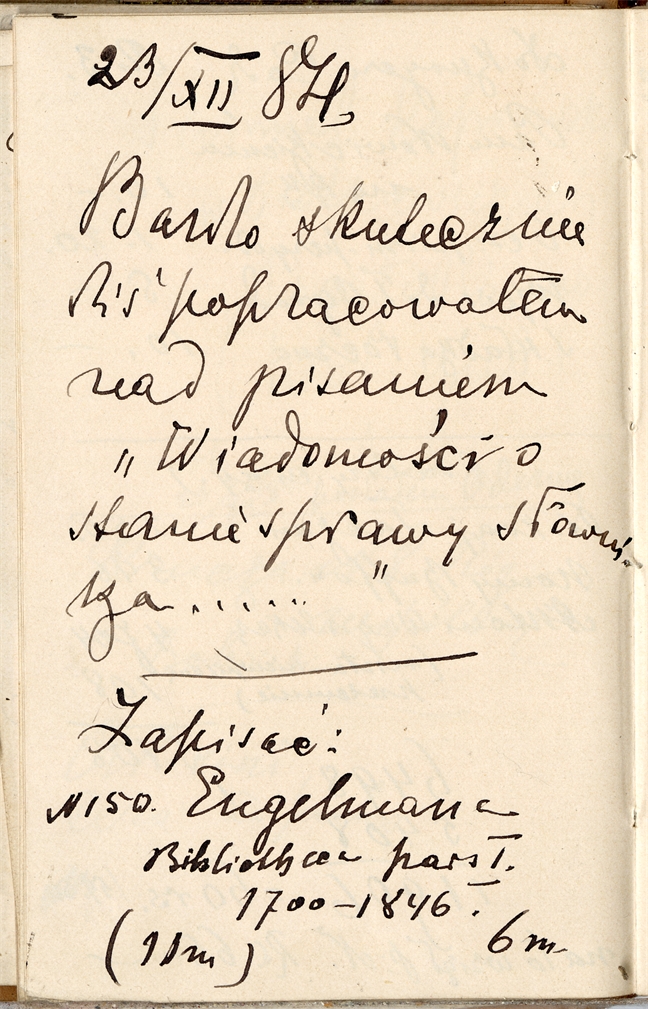 23/XII 84,
Bardzo skutecznie
dziś popracowałem
nad pisaniem
„Wiadomości o
stanie sprawy słowni-
ka ......"
Zapisać:
N150. Engelmann
Bibliotheca pars I.
1700–1846.
(11m) 6m